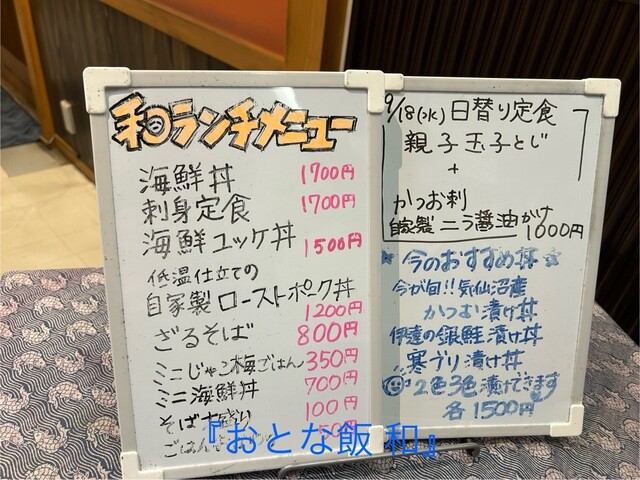 和ランチメニュー
海鮮丼 1700円
刺身定食 1700円
海鮮ユッケ丼 1500円
低温仕立ての
自家製ローストポーク丼
1200円
ざるそば 800円
ミニじゃこ梅ごはん 350円
ミニ海鮮丼 700円
そば大盛り 100円
『おとな飯 和』
9/18(水)日替り定食
親子玉子とじ
+
かつお刺
自家製ニラ醤油がけ
1000円
今のおすすめ丼
今が旬!!気仙沼産
かつお漬け丼
伊達の銀鮭漬け丼
寒ブリ漬け丼
2色3色漬けできます
各1500円